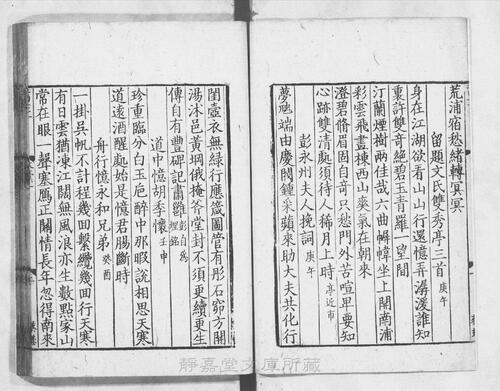 荒浦宿愁緒轉冥冥
留題文氏雙秀亭三首 庚午
身在江湖欲看山山行還憶弄潺湲誰知
裏許雙奇絕碧玉青羅一望間
汀蘭煙樹兩佳哉六曲幈幃坐上開南浦
彩雲飛畫棟西山爽氣在朝來
澄碧脩眉固自奇只愁門外苦喧卑要知
心跡雙清處須待人稀月上時 亭近市
彭永州夫人挽詞 庚午
夢虺端由慶閥鍾采蘋來助大夫共化行
閨壼衣無綠行應箴圖管有彤石窌方開
湯沐邑黃壚俄掩斧堂封不須更續更生
傳自有豐碑記肅雝 彭伯為埋銘
道中憶胡季懷 壬申
珍重臨分白玉巵醉中那暇說相思天寒
道遠酒醒處始是憶君腸斷時
舟行憶永和兄弟 癸酉
一掛吳帆不計程幾回繫纜幾回行天寒
有日雲猶凍江闊無風浪亦生數點家山
常在眼一聲寒鴈正關情長年忽得南來
靜嘉堂文庫所藏